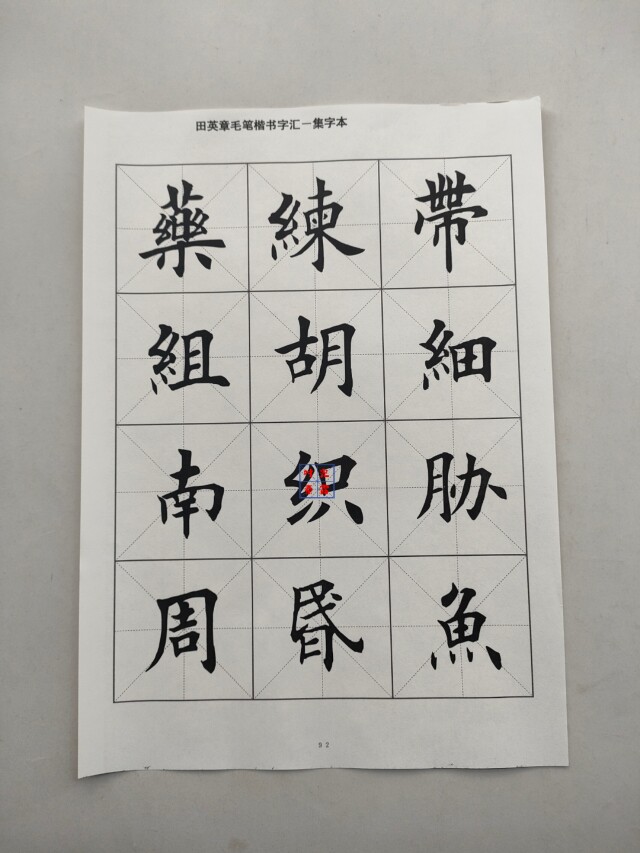 田英章毛笔楷书字汇—集字本
藥 練 帶
組 胡 細
南 织 胁
周 昬 魚
92